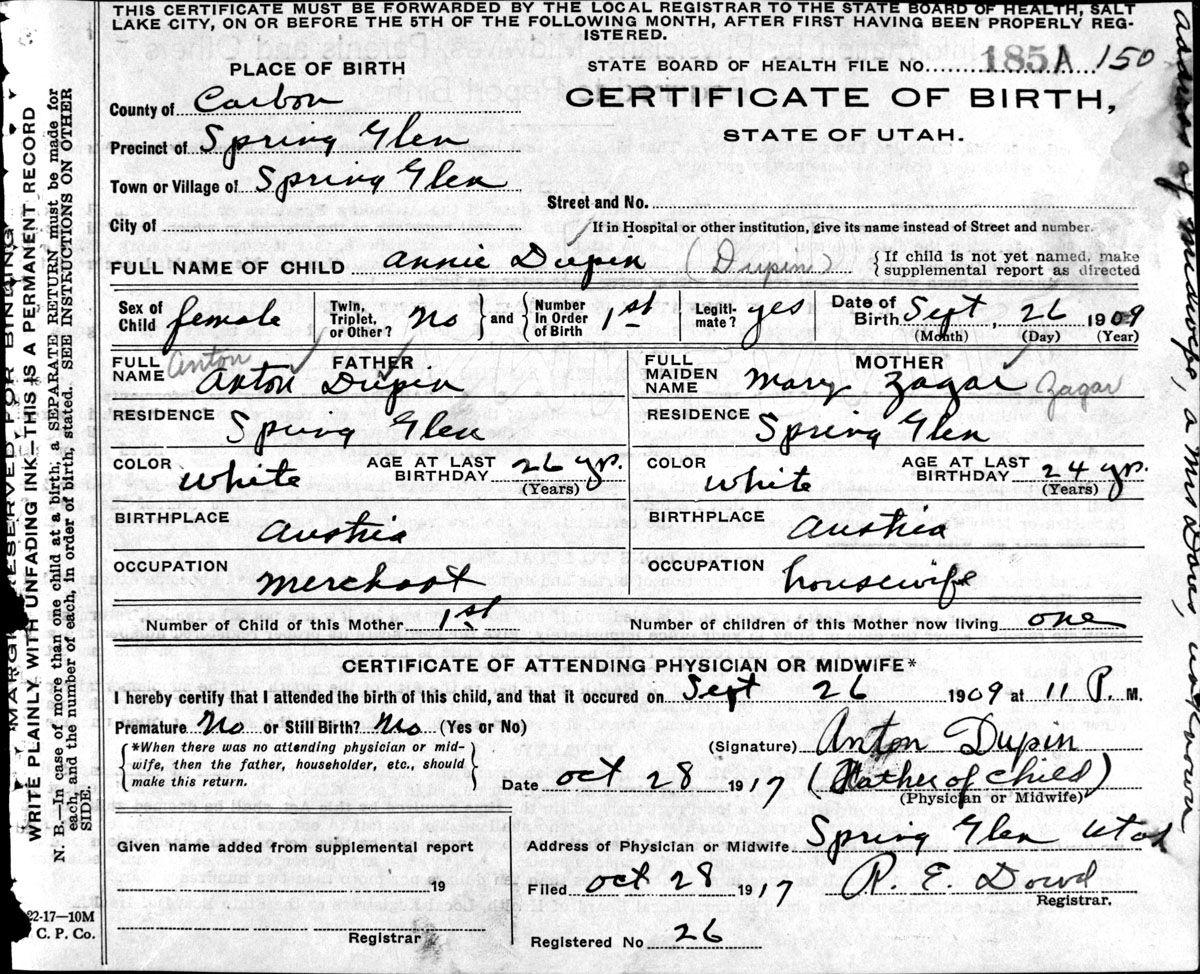 THIS CERTIFICATE MUST BE FORWARDED BY THE LOCAL REGISTRAR TO THE STATE BOARD OF HEALTH, SALT
LAKE CITY, ON OR BEFORE THE 5TH OF THE FOLLOWING MONTH, AFTER FIRST HAVING BEEN PROPERLY REG-
ISTERED.
STATE BOARD OF HEALTH FILE NO. 185A 150
PLACE OF BIRTH
CERTIFICATE OF BIRTH,
STATE OF UTAH.
County of Carbon
Precinct of Spring Glen
Town or Village of Spring Glen
Street and No.
City of
If in Hospital or other institution, give its name instead of Street and number.
FULL NAME OF CHILD Annie Dupin (Dupin) {If child is not yet named, make
supplemental report as directed
Sex of Child female Twin, Triplet, or Other? No and Number In Order of Birth 1st Legiti-mate? yes Date of Birth Sept, 26 1909
(Month) (Day) (Year)
FATHER
FULL NAME Anton Anton Dupin
RESIDENCE Spring Glen
COLOR white AGE AT LAST BIRTHDAY 26 yr.
(Years)
BIRTHPLACE Austria
OCCUPATION Merchant
MOTHER
FULL MAIDEN NAME Mary Zagar Zagar
RESIDENCE Spring Glen
COLOR white AGE AT LAST BIRTHDAY 24 yr.
(Years)
BIRTHPLACE Austria
OCCUPATION housewife
Number of Child of this Mother 1st Number of children of this Mother now living one
CERTIFICATE OF ATTENDING PHYSICIAN OR MIDWIFE*
I hereby certify that I attended the birth of this child, and that it occured on Sept 26 1909 at 11 P. M.
Premature No or Still Birth? No (Yes or No)
{*When there was no attending physician or mid-
wife, then the father, householder, etc., should
make this return.}
(Signature) Anton Dupin
Date Oct 28 1917 (Father of child)
(Physician or Midwife)
Given name added from supplemental report
19
Registrar
Address of Physician or Midwife Spring Glen Utah
Filed Oct 28 1917 R. E. Dowd
Registrar.
Registered No. 26
MARGIN RESERVED FOR BINDING
WRITE PLAINLY WITH UNFADING INK—THIS IS A PERMANENT RECORD
N. B.—In case of more than one child at a birth, a SEPARATE RETURN must be made for
each, and the number of each, in order of birth, stated. SEE INSTRUCTIONS ON OTHER
SIDE.
22-17—10M
C. P. Co.
address of midwife, a Mrs Davis, unknown